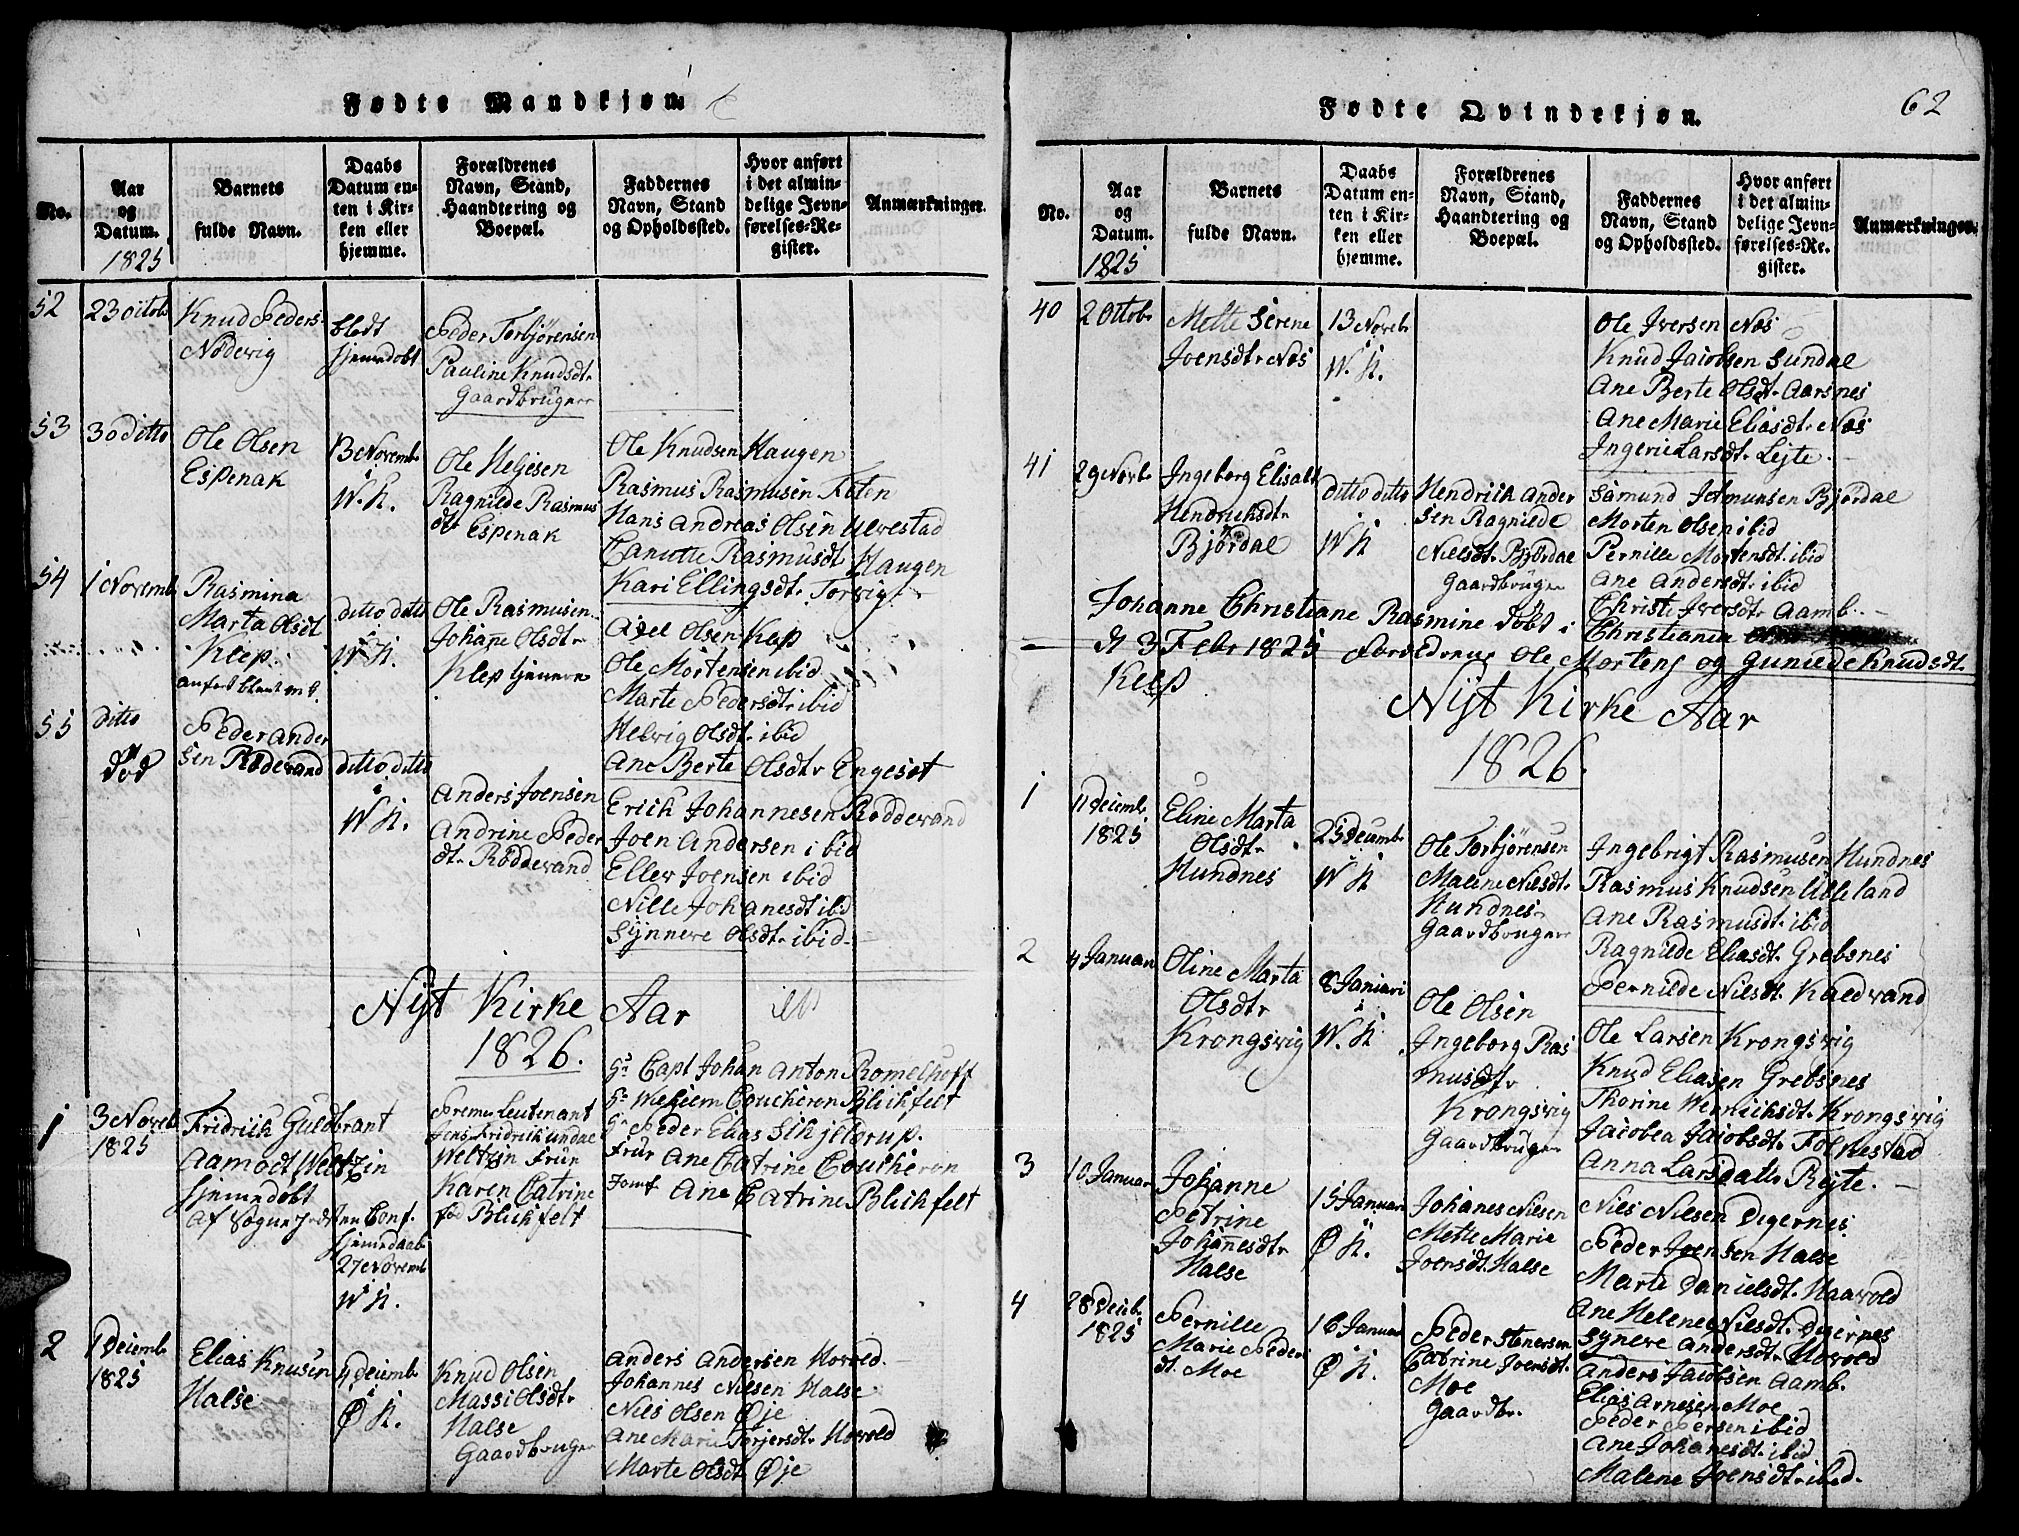 Fødte Mandkjøn.
No.
Aar
og
Datum.
1825
Barnets
fulde Navn.
Daabs
Datum en-
ten i Kir-
ken eller
hjemme.
Forældrenes
Navn, Stand,
Haandtering og
Boepæl.
Faddernes
Navn, Stand
og Opholdssted.
Hvor anført
i det almin-
delige Jevn-
førelses-Re-
gister.
Anmærkninger.
52
23 octob
Knud Peders.
Nødevig
blodt
hjemedøbt
Peder Torbjörensen
Pauline Knudsdt.
Gaardbruger
53
30 Ditto
Ole Olsen
Espenak
13 Novemb
i
W. K.
Ole Heljesen
Ragnilde Rasmus
dt Espenak
Ole Knudsen Haugen
Rasmus Rasmusen Feten
Hans Andreas Olsen Ulvestad
Canutte Rasmusdt. Haugen
Kari Ellingsdt. Torvig
54
1 Novemb
Rasmina
Marta Olsdt
Klep.
ditto ditto
i
W. K.
Ole Rasmusen
Johane Olsdtr
Klep tjenere
Axel Olsen Klep
Ole Mortensen ibid
Marte Pedersdt. ibid
Helvig Olsdt. ibid
Ane Berte Olsdtr Engeset
55
ditto
død
Peder Ander
sen Rødevand
ditto ditto
i
W K.
Anders Joensen
Andrine Peder
dt. Rödderand
Erich Johannesen Rodderand
Joen Andersen ibid
Eller Joensen ibid
Nille Johanesdt ibid
Synnere Olsdt. ibid
Nyt Kirke Aar
1826.
1
3 Novb
1825
Fridrich Guldbrant
Aamodt Weltzin
hjemedøbt
hjemedaab
27 Novemb
i
W K.
Premr Leutenant
Jens Fridrich Undal
Weltzin Frue
Karen Catrine
fød Blichfelt
Hr Capt Johan Anton Romelhoff
Hr Welhem Coucheron Blichfelt
Hr Peder Elias Sichjelerup.
Frur Ane Catrine Coucheron
Jomf Ane Catrine Blichfelt
2
1 Decemb
1825
Elias Knusen
Halse
4 Decemb
i
Ø K.
Knud Olsen
Massi Olsdtr
Halse
Gaardbruger
Anders Andersen Horold
Johannes Nilsen Halse
Nils Olsen Øje
Ane Marie Torjersdt. Horold
Marte Olsdt Øje
Fødte Qvindekjøn.
62
No.
Aar
og
Datum.
1825
Barnets
fulde Navn.
Daabs
Datum en-
ten i Kir-
ken eller
hjemme.
Forældrenes
Navn, Stand,
Haandtering og
Boepæl.
Faddernes
Navn, Stand
og Opholdssted.
Hvor anført
i det almin-
delige Jevn-
førelses-Re-
gister.
Anmærkninger.
40
2 Octob
Mette Serene
Joensdt. Nös
13 Noveb
i
W. K.
Ole Iversen Nös
Knud Jacobsen Sundal
Ane Berte Olsdt. Aarsnes
Ane Marie Eliasdt. Nös
Ingerie Larsdt. Lejte
41
29 Novb
Ingeborg Elisabt
Hendrichsdtr
Björdal
ditto ditto
i
W K
Hendrich Ander
sen Ragnilde
Nielsdt. Björdal
Gaardbruger
Samund Jetmunsen Björdal
Morten Olsen ibid
Pernille Mortensdt. ibid
Ane Andersdt. ibid
Christi Iversdt. Aamb.
Johanne Christiane Rasmine døbt i Christiania
d 3 Febr 1825 Forældrene Ole Mortens og Gunilde Knudsdt.
Klep
Nyt Kirke Aar
1826.
1
11 Decemb.
1825
Eline Marta
Olsdtr
Hundnes
25 Decemb
i
W K
Ole Torbjörensen
Malene Nilsdt.
Hundnes
Gaardbruger
Ingebrigt Rasmusen Hundnes
Rasmus Knudsen Ulleland
Ane Rasmusdt ibid
Ragnilde Eliasdt. Grebsnes
Pernilde Nilsdt. Kaldvand
2
4 Januari
Oline Marta
Olsdtr
Krongsvig
8 Januari
i
W. K.
Ole Olsen
Ingeborg Ras
musdtr
Krongsvig
Gaardbruger
Ole Larsen Krongsvig
Knud Eliasen Grebsnes
Thorine Wernichsdt. Krongsvig
Jacobea Jacobsdt. Folkestad
Anna Larsdatter Rejte.
3
10 Januar
Johanne
Petrine
Johannesdtr
Halse
15 Januari
i
Ø K.
Johanes Nilsen
Mette Marie
Joensdt. Halse
Nils Nilsen Digernes
Peder Joensen Halse
Marte Danielsdt. Haavold
Ane Helene Nilsdt. Digernes
Synere Andersdt. Horold
4
28 Deceb.
1825
Pernille
Marie Peder
dt. Moe
16 Januar
i
Ø K.
Peder Stenersen
Catrine Joensdt.
Moe
Gaardbr.
Anders Jacobsen Aamb.
Elias Arnesen Moe
Peder Persen ibid
Ane Johanesdt. ibid
Malene Joensdt. ibid.